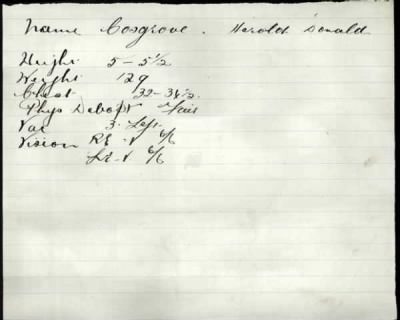 Name Cosgrove. Harold Donald
Height 5 - 5 1/2
Weight 129
Chest 32-34 1/2
Phys Debopt Fair
Vac 3. Left
Vision RE - V 6/6
LE - V 6/6